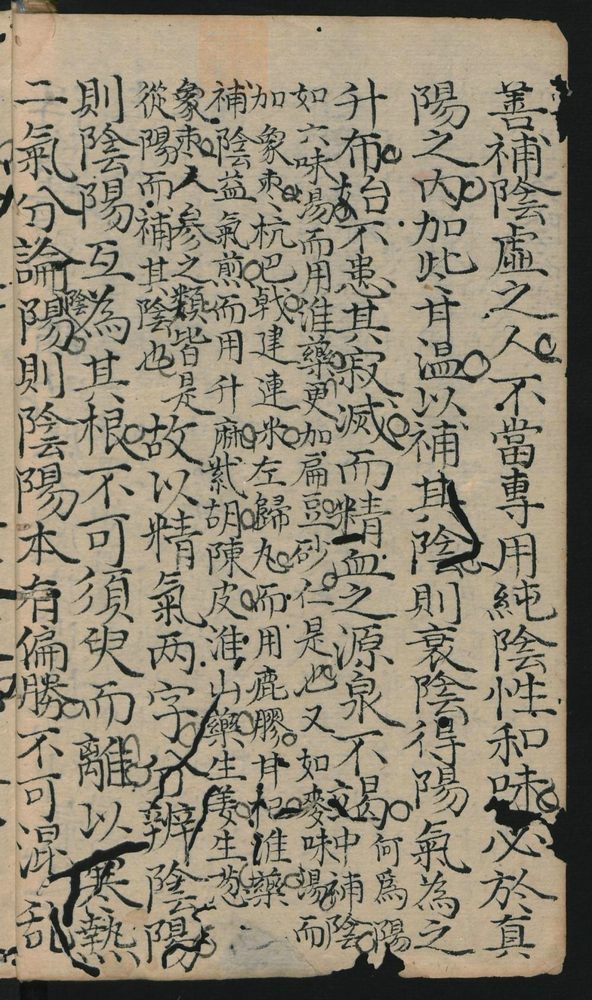 善補陰虛之人不當專用純陰性和味必於真
陽之內加此甘溫以補其陰則衰陰得陽氣為之
升布始不患其寂滅而精血之源泉不竭
何為陽
中補陰
如六味湯而用淮藥更加扁豆砂仁是也又如麥味湯而
加象枣杭巴戟建連米左歸丸而用鹿膠甘杞淮藥
補陰益氣煎而用升麻紫胡陳皮淮山藥生姜生葱
象枣人參之類皆是
從陽而補其陰也
故以精氣两字分辨陰陽
則陰陽互為其根不可須臾而離以寒熱
二氣分論陰陽則陰陽本有偏勝不可混乱